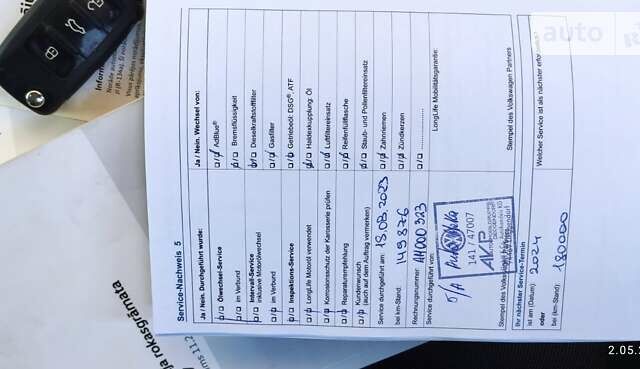 Service-Nachweis 5
Ja / Nein. Durchgeführt wurde:
Ölwechsel-Service
im Verbund
Intervall-Service
inklusive Motorölwechsel
im Verbund
Inspektions-Service
LongLife Motoröl verwendet
Korrosionsschutz der Karosserie prüfen
Reparaturempfehlung
Kundenwunsch
(auch auf dem Auftrag vermerken)
Service durchgeführt am: 18.08.2023
bei km-Stand: 149876
Rechnungsnummer: AH000323
Service durchgeführt von:
141 / 47007
AKP
Stempel des
Ihr nächster Service-Termin
ist am (Datum) 2024
oder
bei (km-Stand): 180000
Ja / Nein. Wechsel von:
AdBlue®
Bremsflüssigkeit
Dieselkraftstofffilter
Gasfilter
Getriebeöl: DSG®, ATF
Haldexkupplung: Öl
Luftfiltereinsatz
Reifenfüllflasche
Staub- und Pollenfiltereinsatz
Zahnriemen
Zündkerzen
LongLife Mobilitätsgarantie:
Stempel des Volkswagen Partners
Welcher Service ist als nächster
auto
R
2.05.2
ja rokasgrāmata
ms 11.2